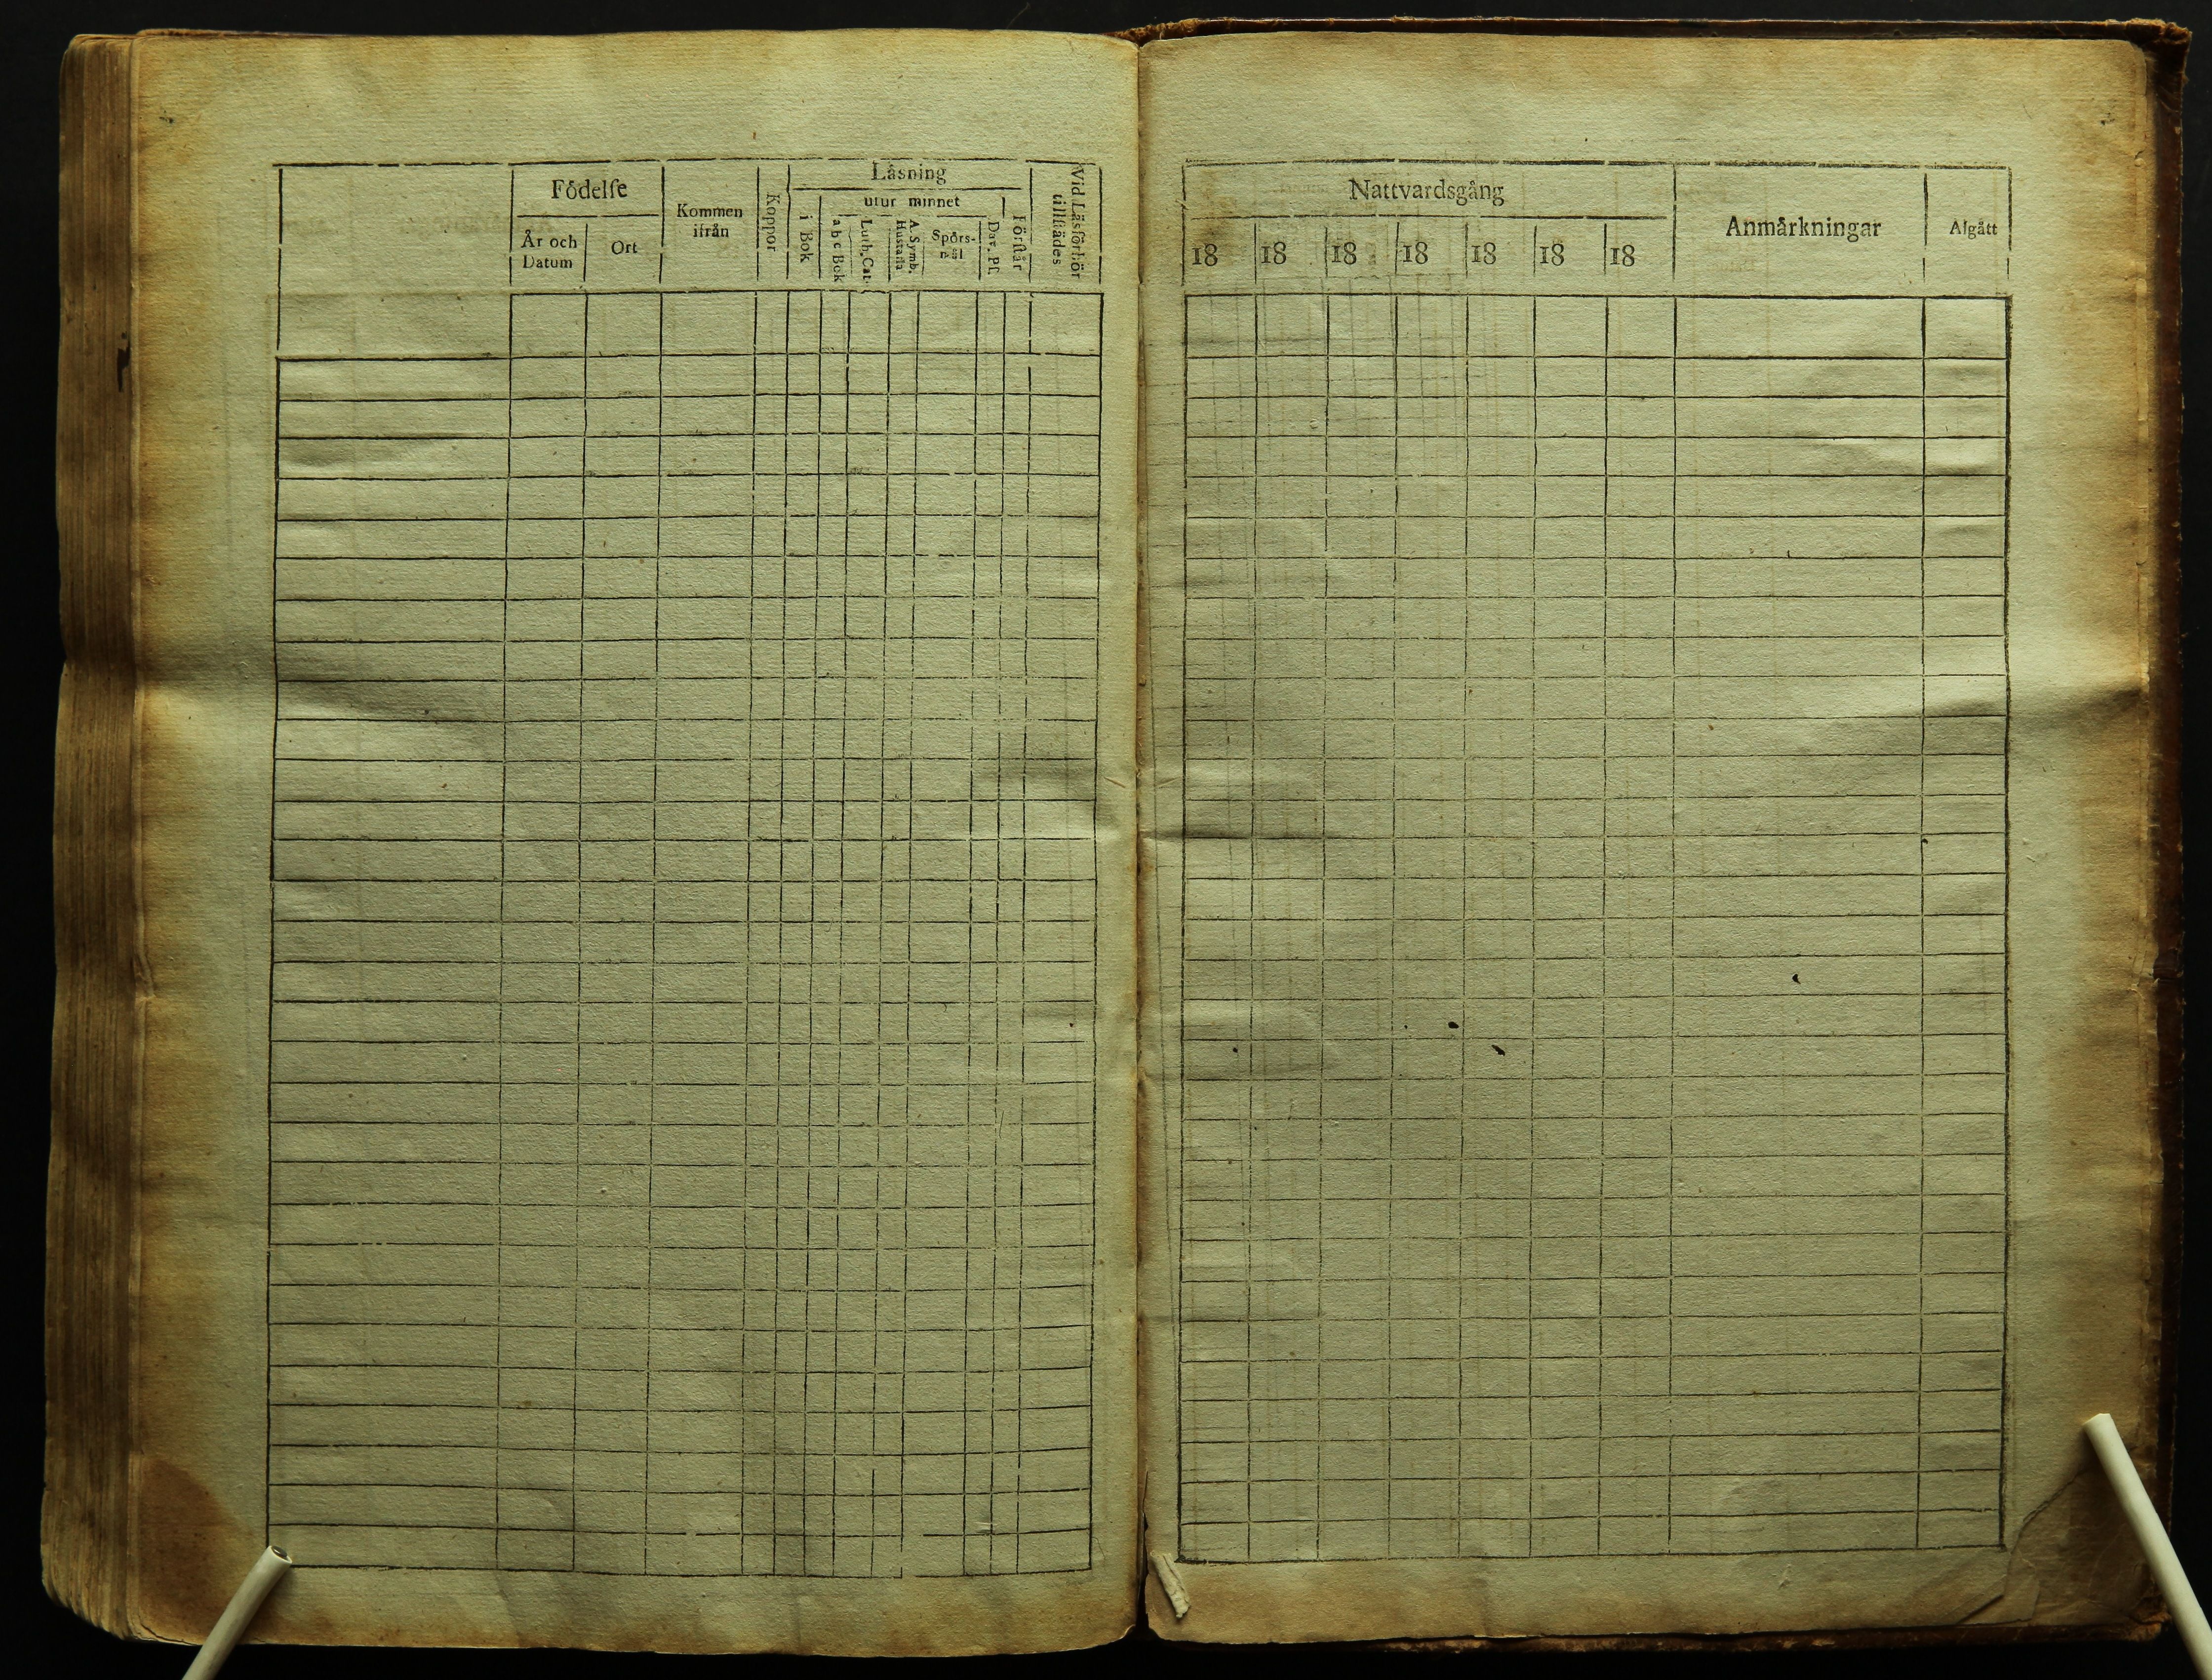 Födelſe
År och
Datum
Ort
Kommen
ifrån
Koppor
Låsning
i Bok
utur minnet
a b c Bok
Luth. Cat.
A. Symb.
Hustafla
Spörs-
mål
Dav. Pſ.
Förſtår
Vid Läsförhör
tillſtädes
Nattvardsgång
18 18 18 18 18 18 18
Anmårkningar
Afgått